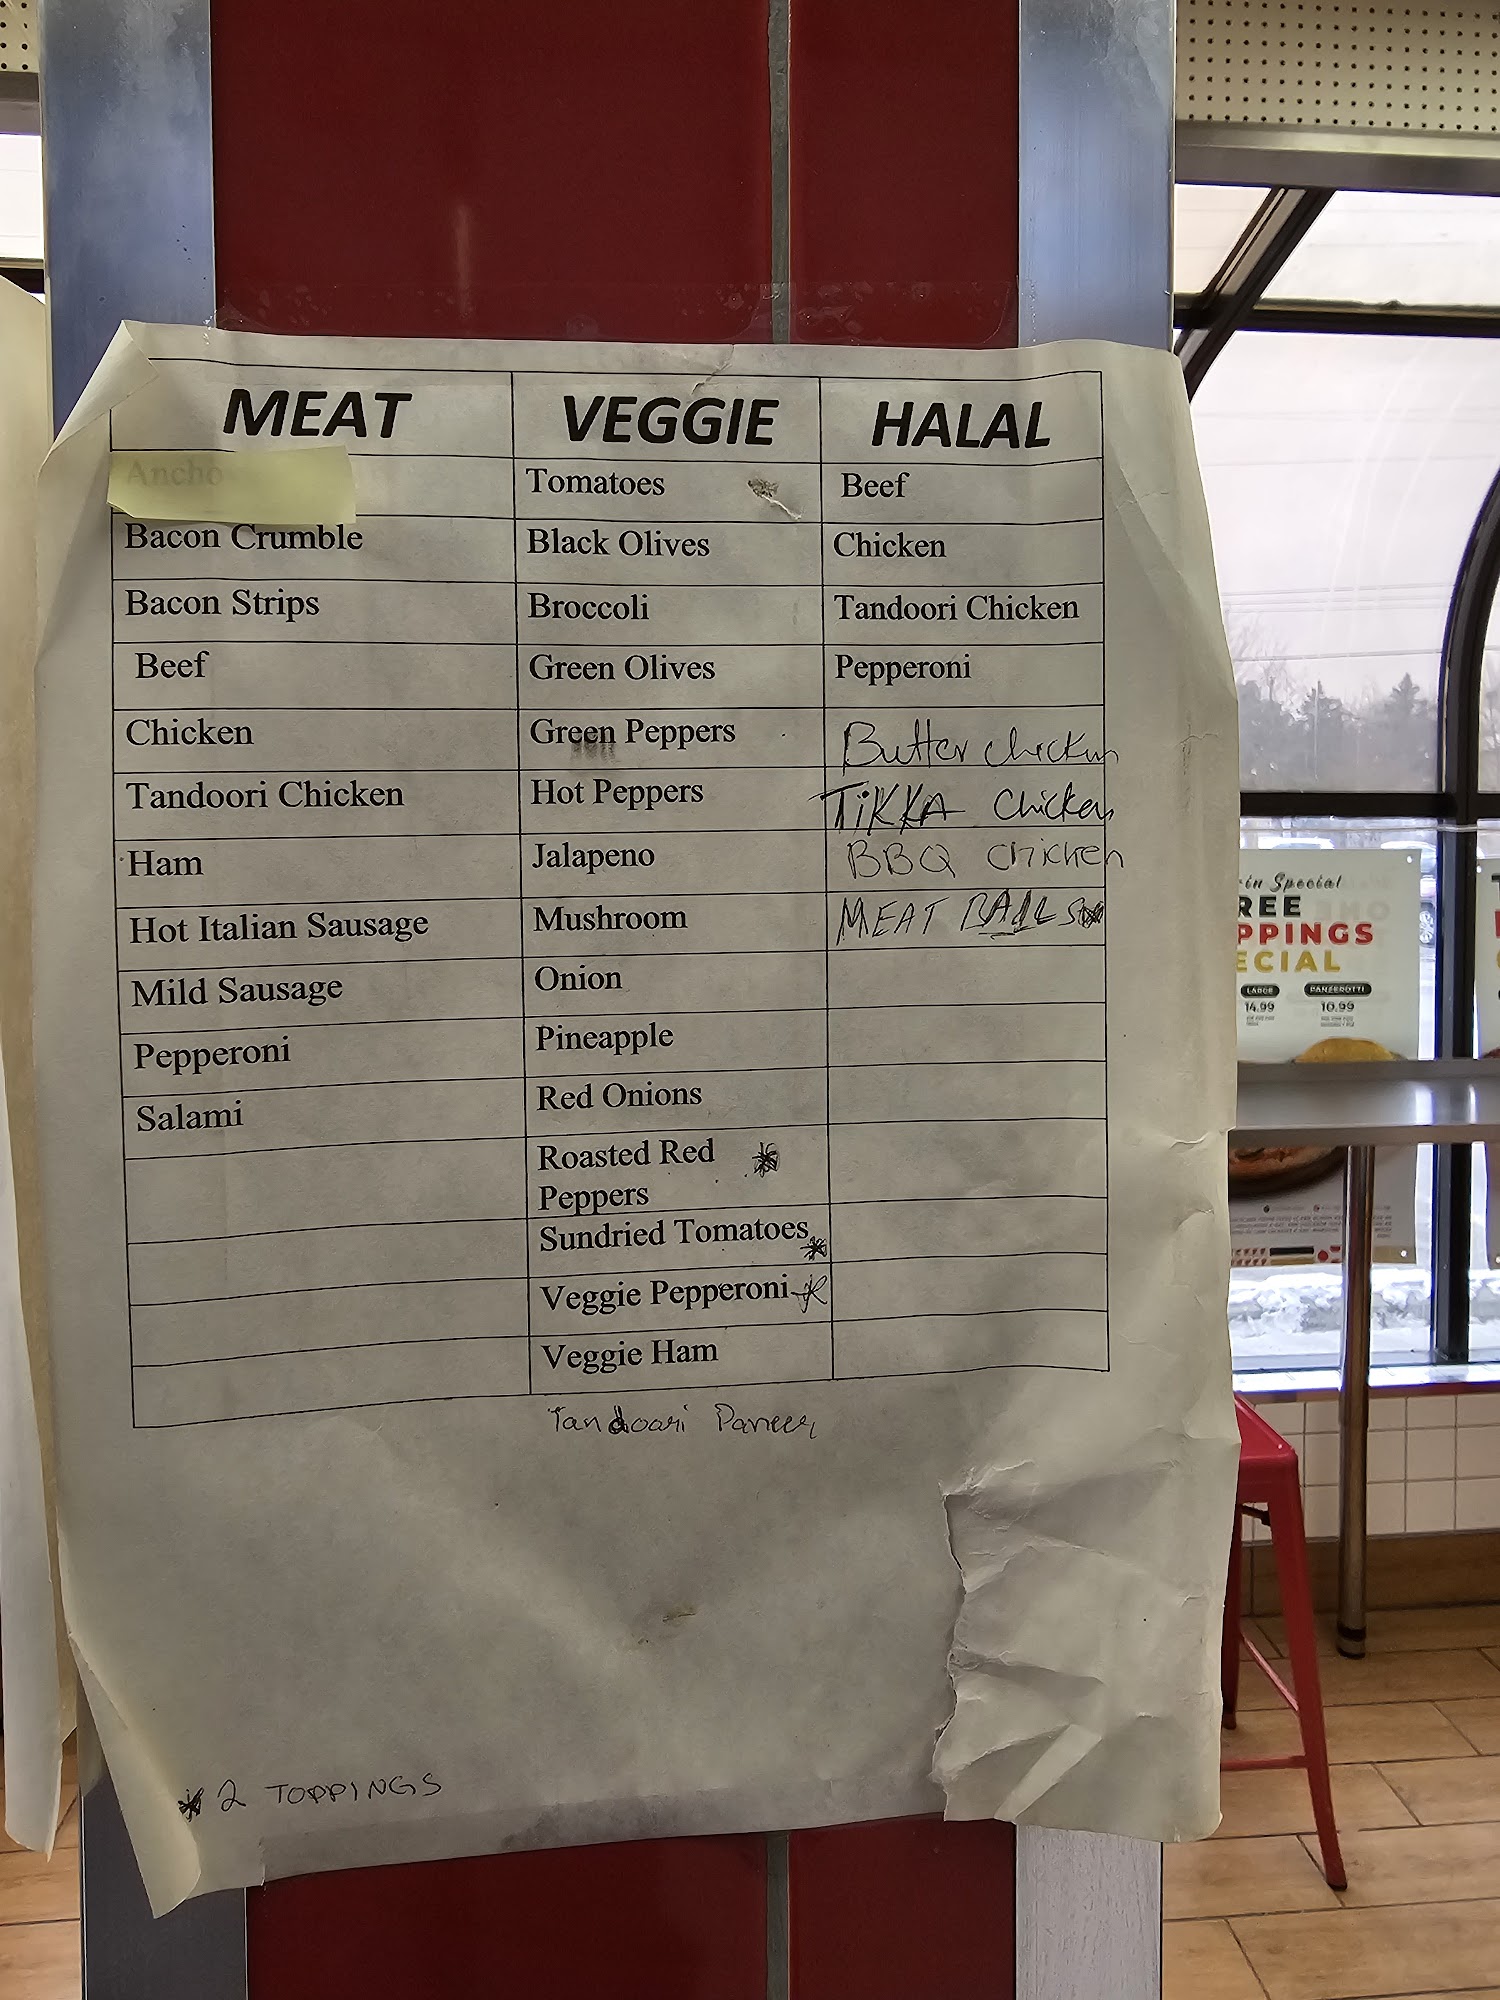 MEAT VEGGIE HALAL
Ancho Tomatoes Beef
Bacon Crumble Black Olives Chicken
Bacon Strips Broccoli Tandoori Chicken
Beef Green Olives Pepperoni
Chicken Green Peppers Butter chicken
Tandoori Chicken Hot Peppers TiKKA Chicken
Ham Jalapeno BBQ Chicken
Hot Italian Sausage Mushroom MEAT BALLS*
Mild Sausage Onion
Pepperoni Pineapple
Salami Red Onions
Roasted Red *
Peppers
Sundried Tomatoes *
Veggie Pepperoni *
Veggie Ham
Tandoori Paneer
* 2 TOPPINGS
-in Special
REE
PPINGS
ECIAL
LARGE PANZEROTTI
14.99 10.99